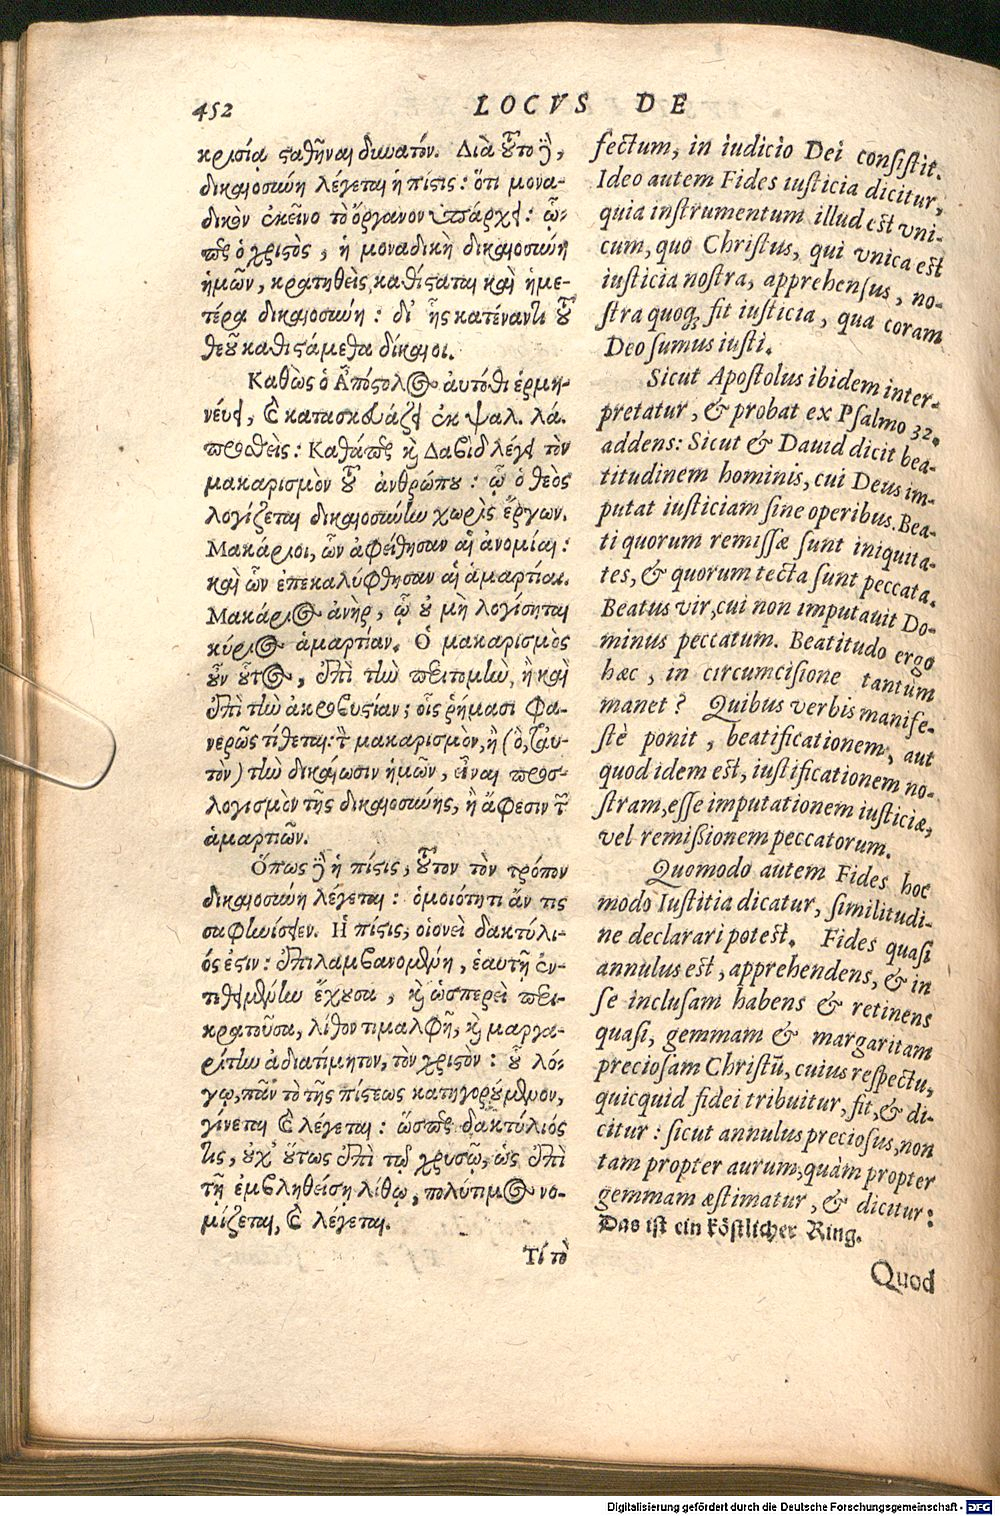 452
LOCVS DE
κρισίᾳ ϛαθῆναι δυνατόν. Διὰ τοῦτο δὲ,
δικαιοσύνη λέγεται ἡ πίϛις: ὅτι μονα-
δικὸν ἐκεῖνο τὸ ὄργανον ὑπάρχει: ᾧ-
περ ὁ χριϛὸς, ἡ μοναδικὴ δικαιοσύνη
ἡμῶν, κρατηθεὶς, καθίϛαται καὶ ἡμε-
τέρα δικαιοσύνη: δι᾽ ἧς κατέναντι τοῦ
θεοῦ καθιϛάμεθα δίκαιοι.
Καθὼς ὁ Ἀπόϛολος αὐτόθι ἑρμη-
νεύει, καὶ κατασκευάζει ἐκ ψαλ. λα.
προθεὶς: Καθάπερ καὶ Δαβὶδ λέγει τὸν
μακαρισμὸν τοῦ ἀνθρώπου: ᾧ ὁ θεὸς
λογίζεται δικαιοσύνην χωρὶς ἔργων.
Μακάριοι, ὧν ἀφείθησαν αἱ ἀνομίαι:
καὶ ὧν ἐπεκαλύφθησαν αἱ ἁμαρτίαι.
Μακάριος ἀνὴρ, ᾧ οὐ μὴ λογίσηται
κύριος ἁμαρτίαν. Ὁ μακαρισμὸς
οὖν οὗτος, ἐπὶ τὴν περιτομὴν, ἢ καὶ
ἐπὶ τὴν ἀκροβυϛίαν; οἷς ῥήμασι φα-
νερῶς τίθεται: τὸν μακαρισμὸν, ἢ (ὃ, ταὐ-
τὸν) τὴν δικαίωσιν ἡμῶν, εἶναι προσ-
λογισμὸν τῆς δικαιοσύνης, ἢ ἄφεσιν τῶν
ἁμαρτιῶν.
Ὅπως δὲ ἡ πίϛις, τοῦτον τὸν τρόπον
δικαιοσύνη λέγεται: ὁμοιότητι ἄν τις
σαφηνίσειεν. Ἡ πίϛις, οἱονεὶ δακτύλι-
ός ἐϛιν: ἐπιλαμβανομένη, ἑαυτῇ ἐν-
τιθεμένην ἔχουσα, καὶ ὡσπερεὶ περι-
κρατοῦσα, λίθον τιμαλφῆ, καὶ μαργα-
ρίτην ἀδιατίμητον, τὸν χριϛόν: οὗ λό-
γῳ, πᾶν τὸ τῆς πίϛεως κατηγορούμενον,
γίνεται καὶ λέγεται: ὥσπερ δακτύλιός
τις, οὐχ᾽ οὕτως ἐπὶ τῷ χρυσῷ, ὡς ἐπὶ
τῇ ἐμβληθείσῃ λίθῳ, πολύτιμος νο-
μίζεται, καὶ λέγεται.
Τί τὸ
fectum, in iudicio Dei consistit.
Ideo autem Fides iusticia dicitur,
quia instrumentum illud est vni-
cum, quo Christus, qui vnica est
iusticia nostra, apprehensus, no-
stra quoq; fit iusticia, qua coram
Deo sumus iusti.
Sicut Apostolus ibidem inter-
pretatur, & probat ex Psalmo 32.
addens: Sicut & Dauid dicit bea-
titudinem hominis, cui Deus im-
putat iusticiam sine operibus. Bea-
ti quorum remissæ sunt iniquita-
tes, & quorum tecta sunt peccata.
Beatus vir, cui non imputauit Do-
minus peccatum. Beatitudo ergo
hæc, in circumcisione tantum
manet? Quibus verbis manife-
stè ponit, beatificationem, aut
quod idem est, iustificationem no-
stram, esse imputationem iusticiæ,
vel remissionem peccatorum.
Quomodo autem Fides hoc
modo Iustitia dicatur, similitudi-
ne declarari potest. Fides quasi
annulus est, apprehendens, & in
se inclusam habens & retinens
quasi, gemmam & margaritam
preciosam Christū, cuius respectu,
quicquid fidei tribuitur, fit, & di-
citur: sicut annulus preciosus, non
tam propter aurum, quàm propter
gemmam æstimatur, & dicitur:
Das ist ein köstlicher Ring.
Quod
Digitalisierung gefördert durch die Deutsche Forschungsgemeinschaft - DFG